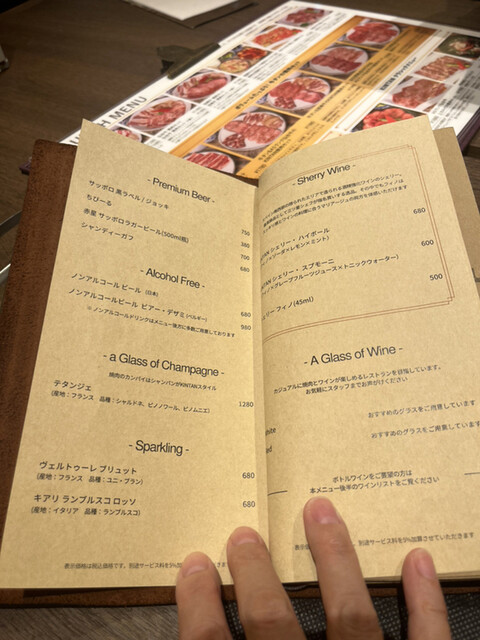 MENU
- Premium Beer -
サッポロ 黒ラベル / ジョッキ 756
ちびーる 380
赤星 サッポロラガービール(500ml瓶) 700
シャンディーガフ 680
- Alcohol Free -
ノンアルコールビール (日本) 680
ノンアルコールビール ビアー・デザミ (ベルギー) 560
※ ノンアルコールドリンクはメニュー後方に多数ご用意しております
- a Glass of Champagne -
焼肉のカンパイはシャンパンがKINTANスタイル
テタンジェ 1280
(産地：フランス 品種：シャルドネ、ピノノワール、ピノムニエ)
- Sparkling -
ヴェルトゥーレ ブリュット 680
(産地：フランス 品種：ユニ・ブラン)
キアリ ランブルスコ ロッソ 680
(産地：イタリア 品種：ランブルスコ)
表示価格は税込価格です。別途サービス料を5%加
- Sherry Wine -
TAN シェリー・ハイボール 680
×レモン×ミント)
TAN シェリー・スプモーニ 600
×グレープフルーツジュース×トニックウォーター)
リー フィノ(45ml) 500
- A Glass of Wine -
カジュアルに焼肉とワインが楽しめるレストランを目指しています。
お気軽にスタッフまでお声がけください
おすすめのグラスをご用意しています
おすすめのグラスをご用意しています
ボトルワインをご要望の方は
本メニュー後半のワインリストをご覧ください
別途サービス料を5%加算させていただきます